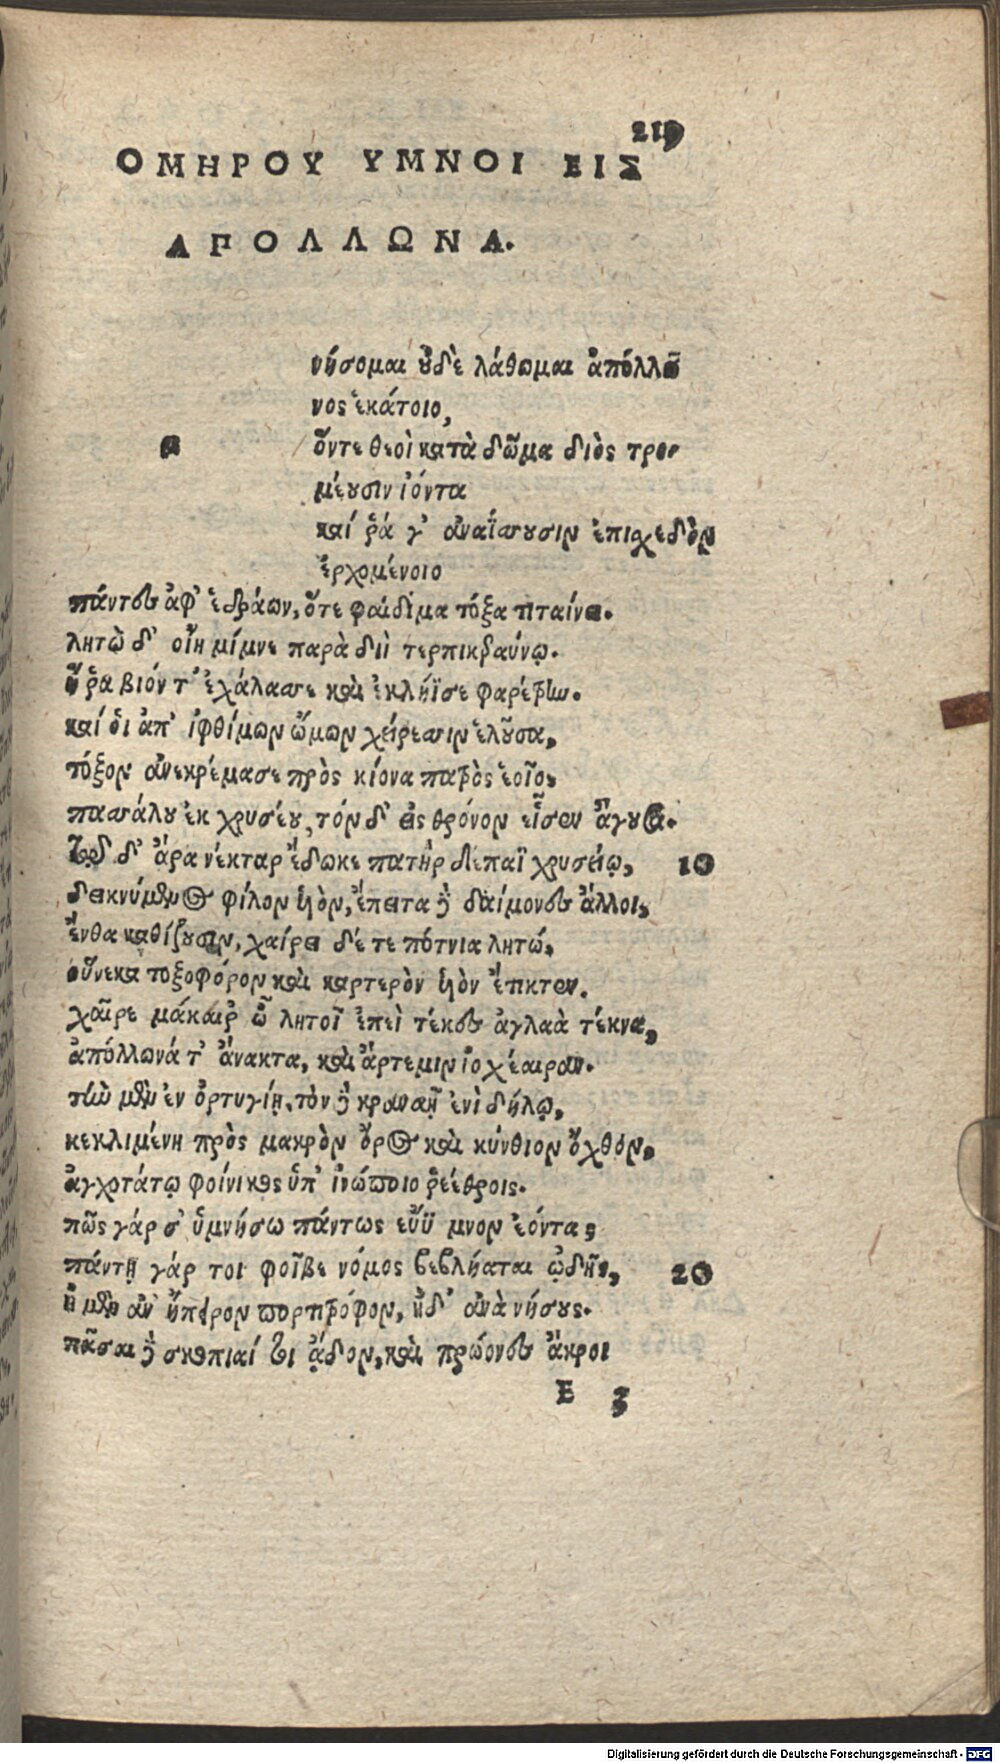 219
ΟΜΗΡΟΥ ΥΜΝΟΙ ΕΙΣ
ΑΠΟΛΛΩΝΑ.
νήσομαι οὐδὲ λάθωμαι ἀπόλλω
νος ἑκάτοιο,
ὅντε θεοὶ κατὰ δῶμα διὸς τρο
μέουσιν ἰόντα
καί ῥά γ' ἀναΐσσουσιν ἐπισχεδὸν
ἐρχομένοιο
πάντες ἀφ' ἑδράων, ὅτε φαίδιμα τόξα τιταίνει.
λητὼ δ' οἴη μίμνε παρὰ διὶ τερπικεραύνῳ.
ἥ ῥα βιόν τ' ἐχάλασσε καὶ ἐκλήϊσε φαρέτρην.
καί οἱ ἀπ' ἰφθίμων ὤμων χείρεσσιν ἑλοῦσα,
τόξον ἀνεκρέμασε πρὸς κίονα πατρὸς ἑοῖο,
πασσάλου ἐκ χρυσέου, τόν δ' εἰς θρόνον εἷσεν ἄγουσα.
τῷ δ' ἄρα νέκταρ ἔδωκε πατὴρ δέπαϊ χρυσείῳ, 10
δεικνύμενος φίλον υἱὸν, ἔπειτα δὲ δαίμονες ἄλλοι,
ἔνθα καθίζουσιν, χαίρει δέ τε πότνια λητώ,
οὕνεκα τοξοφόρον καὶ καρτερὸν υἱὸν ἔτικτεν.
χαῖρε μάκαιρ' ὦ λητοῖ ἐπεὶ τέκες ἀγλαὰ τέκνα,
ἀπόλλωνά τ' ἄνακτα, καὶ ἄρτεμιν ἰοχέαιραν.
τὴν μὲν ἐν ὀρτυγίῃ, τὸν δὲ κραναῇ ἐνὶ δήλῳ,
κεκλιμένη πρὸς μακρὸν ὄρος καὶ κύνθιον ὄχθον,
ἀγχοτάτω φοίνικος ὑπ' ἰνώποιο ῥεέθροις.
πῶς γάρ σ' ὑμνήσω πάντως εὔϋμνον ἐόντα;
πάντῃ γάρ τοι φοῖβε νόμος βεβλήαται ᾠδῆς, 20
ἠ μὲν ἀν' ἤπειρον πορτιτρόφον, ἠδ' ἀνὰ νήσους.
πᾶσαι δὲ σκοπιαί τοι ᾅδον, καὶ πρώονες ἄκροι
Ε 3
Digitalisierung gefördert durch die Deutsche Forschungsgemeinschaft - DFG